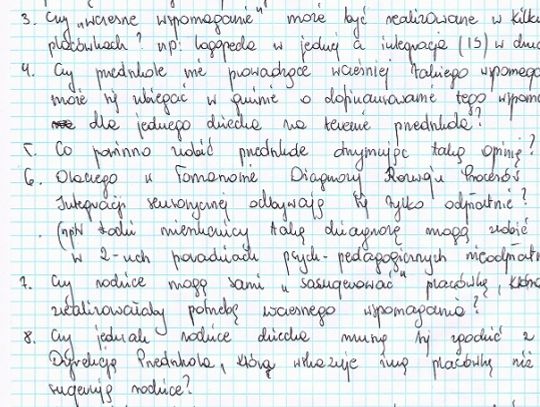 3. Czy "wczesne wspomaganie" może być realizowane w kilku
placówkach? np: logopeda w jednej a integracja (IS) w
4. Czy przedszkole nie prowadzące wcześniej takiego wspomaga
może się ubiegać w gminie o dofinansowanie tego wspom
dla jednego dziecka na terenie przedszkola?
5. Co powinno zrobić przedszkole otrzymując taką opinię?
6. Dlaczego w Tomaszowie Diagnozy Rozwoju Procesów
Integracji sensorycznej odbywają się tylko odpłatnie?
(npw Łodzi mieszkańcy taką diagnozę mogą zrobić
w 2-uch poradniach psych-pedagogicznych nieodpłatn
7. Czy rodzice mogą sami "zasugerować" placówkę, która
zrealizowałaby potrzebę wczesnego wspomagania?
8. Czy jednak rodzice dziecka muszą się zgodzić z
Dyrekcją Przedszkola, która wskazuje inną placówkę niż
sugerują rodzice?